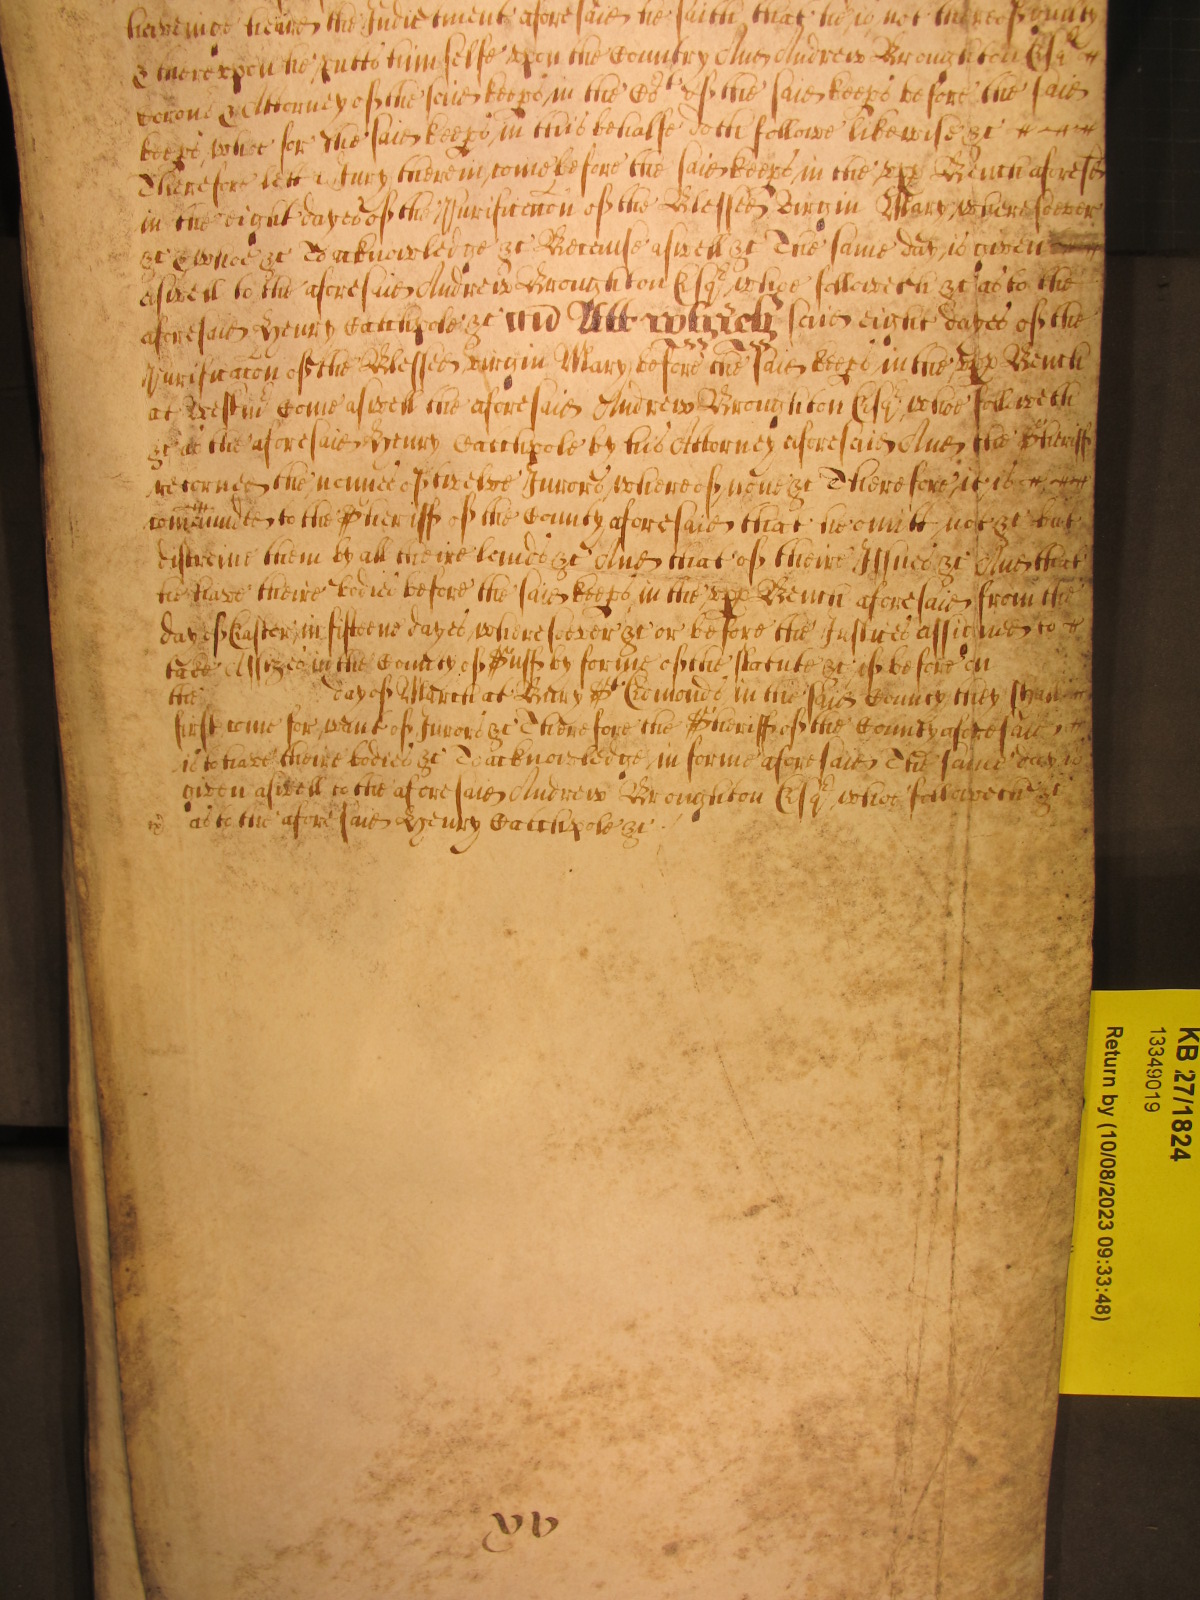 haveinge heard the Indictment aforesaid he saith that he is not thereof guilty
& thereupon he putts himselfe upon the Country And Andrew Broughton Esqr
Corone & Attorney of the said keeps in the Ct of the said keeps before the said
keeps, whoe for the said keeps in this behalfe doth followe likewise &c
Therefore lett a Jury therein come before the said keeps in the upp Bench aforesd
in the eight dayes of the Purificacon of the Blessed Virgin Mary, wheresoever
&c & whoe &c To acknowledge &c Because aswell &c The same day is given
aswell to the aforesaid Andrew Broughton Esqr, whoe followeth &c as to the
aforesaid Henry Catchpole &c And Att which said eight dayes of the
Purificacon of the Blessed virgin Mary before the said keeps in the upp Bench
at Westmr Come aswell the aforesaid Andrew Broughton Esqr, whoe followeth
&c as the aforesaid Henry Catchpole by his Attorney aforesaid And the Sheriff
retorned the names of twelve Jurors, whereof none &c Therefore it is
commaunded to the Sheriff of the County aforesaid that he omitt not &c but
distreine them by all theire lands &c And that of theire Issues &c And that
he have theire bodies before the said keeps in the upp Bench aforesaid from the
day of Easter in fifteene dayes, wheresoever &c or before the Justices assigned to
take Assizes in the County of Suff by forme of the statute &c if before on
the day of March at Bury St Edmonds in the said County they shall
first come for want of Jurors &c Therefore the Sheriff of the County aforesaid
is to have theire bodies &c To acknowledge in forme aforesaid The same day is
given aswell to the aforesaid Andrew Broughton Esqr, whoe followeth &c
as to the aforesaid Henry Catchpole &c
xv
KB 27/1824
13349019
Return by (10/08/2023 09:33:48)